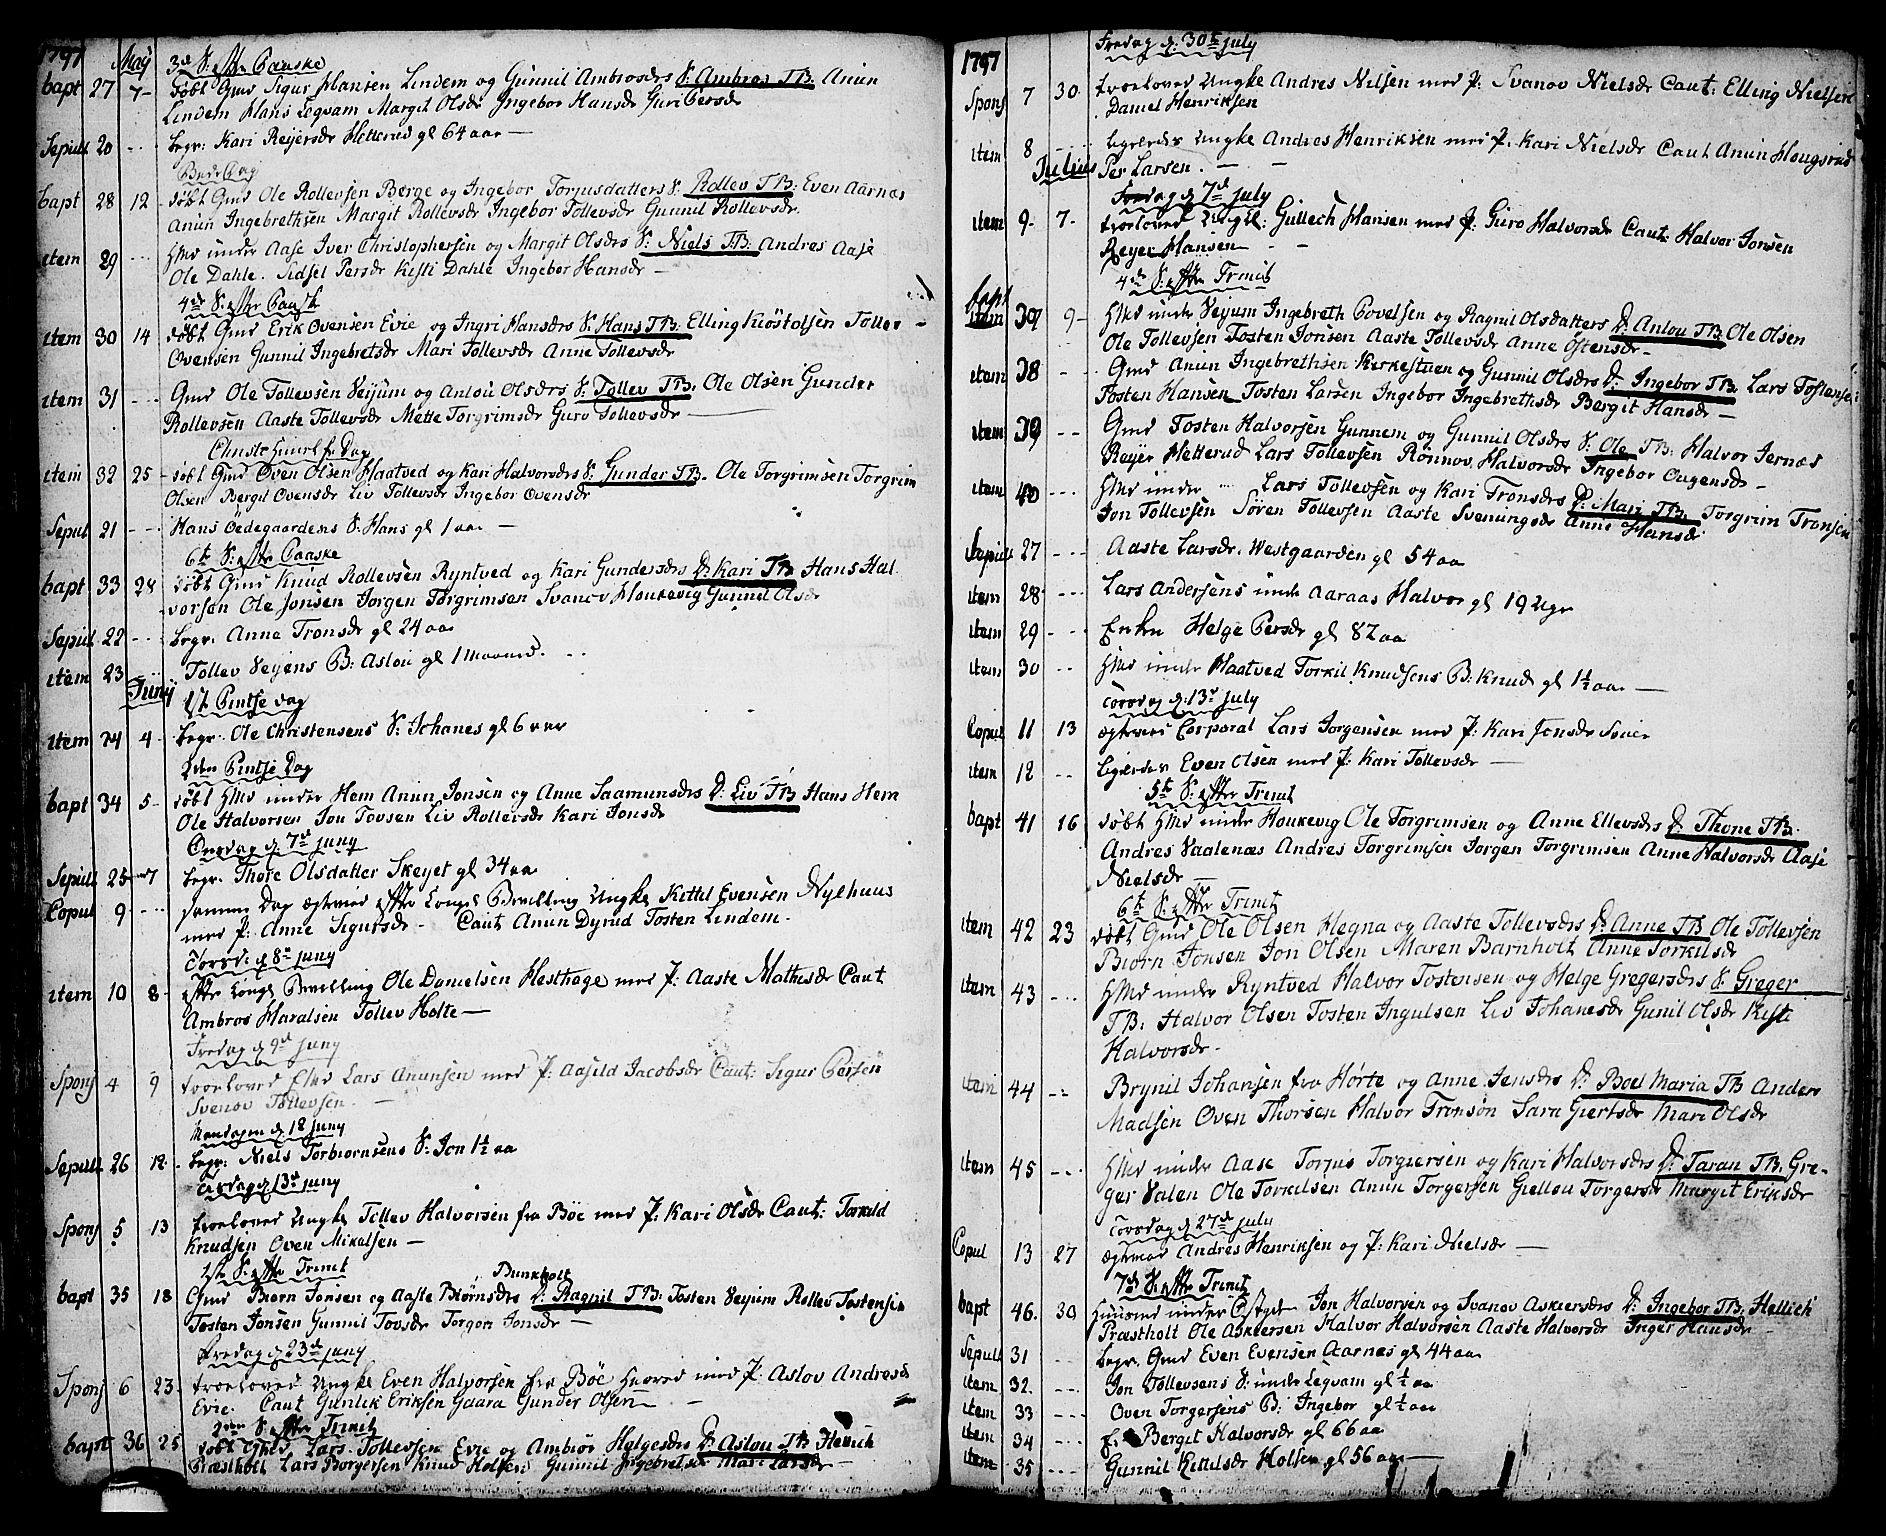 1797 May 3de S: efter Paaske
bapt 27 7 - døbt Gmd Sigur Hansen Lindem og Gunnil Ambrosdrs S: Ambros TB: Anun
Lindem Hans Legvam Margit Olsdr Ingebor Hansdr Guri Persdr
Sepult 20 - - - begr: Kari Reijersdr Hetterud gl 64 aar -
Bede Dag
bapt 28 12 - døbt Gmd Ole Rollevsen Berge og Ingebor Torjusdatters S: Rollev TB: Even Aarnæs
Anun Ingebrethsen Margit Rollevsdr Ingebor Tollevsdr Gunnil Rollevsdr.
item 29 - - - Hmd under Aase Iver Christophersen og Margit Olsdrs S: Niels TB: Andres Aase
Ole Dahle. Sidsel Persdr Kisti Dahle Ingebor Hansdr -
4de S: efter Paask
item 30 14 døbt Gmd Erik Ovensen Evie og Ingri Hansdrs S: Hans TB: Elling Kiöstolsen Tollev
Ovensen Gunnil Ingebretsdr Mari Tollevsdr Anne Tollevsdr
item 31 - - - Gmd Ole Tollevsen Vejum og Anlou Olsdrs S: Tollev TB: Ole Olsen Gunder
Rollevsen Aaste Tollevsdr Mette Torgrimsdr Guro Tollevsdr -
Christi Himelf: Dag
item 32 25 - døbt Gmd Oven Olsen Haatved og Kari Halvorsdrs S: Gunder TB. Ole Torgrimsen Torgrim
Olsen Bergit Ovensdr Liv Tollevsdr Ingebor Ovensdr
Sepul 21 - - - Hans Ödegaardens S: Hans gl 1 aar -
6te S: efter Paaske
bapt 33 28 døbt Gmd Knud Rollevsen Ryntved og Kari Gundersdrs D: Kari TB Hans Hal
vorsen Ole Jonsen Jorgen Torgrimsen Svanov Houkevig Gunnil Olsdr
Sepul 22 - - - begr: Anne Tronsdr gl 24 aar
item 23 Tollev Vejens B: Aslou gl 1 Maaned. - -
Junij
1st Pintse dag
item 24 4 - begr: Ole Christensens S: Johanes gl 6 aar
2den Pintse Dag
bapt 34 5 - døbt Hmd under Hem Anun Jonsen og Anne Saamunsdrs D: Liv TB Hans Hem
Ole Halvorsen Jon Tovsen Liv Rollevsdr Kari Jonsdr
Onsdag d 7de juny
Sepult 25 7 begr: Thore Olsdatter Skeyet gl 34 aar
Copul 9 - - - samme Dag ægtevied efter Kongel Bevilling Ungke Kittil Evensen Nylhuus
med P: Anne Sigursdr - Caut Anun Dyrud Tosten Lindem.
Torsd: d 8de juny
item 10 8 - efter Kongl Bevilling Ole Danielsen Hesthage med P: Aaste Mathesdr Caut
Ambros Haralsen Tollev Holte -
Fredag d 9de juny
Spons 4 9 troelovet Elke Lars Anunsen med P: Aasild Jacobsdr Caut: Sigur Persen
Svenov Tollevsen. -
Mandagen d 12 juny
Sepult 26 12 - begr: Niels Torbiornsens S: Jon 1½ aar
Tirsdag d 13de juny
Spons 5 13 troelovet Ungke Tollev Halvorsen fra Böe med P: Kari Olsdr Caut: Torkild
Knudsen Oven Mikelsen -
1st S: efter Trinit
Bunkholt
bapt 35 18 Gmd Biorn Jonsen og Aaste Biørnsdrs D: Ragnil TB: Tosten Vejum Rollev Tostensen
Tosten Jonsen Gunnil Tovsdr Torgon Jonsdr -
Fredag d 23de juny
Spons 6 23 - troelovet Ungke Even Halvorsen fra Böe hiored med P: Aslov Andresdr
Evie. Caut Gunlik Eriksen Gaara Gunder Olsen -
2den S: efter Trinit
bapt 36 25 døbt Gmd Lars Tollevsen Evie og Ambior Helgesdrs D: Aslou TB Hellich
Præstholt Lars Borgersen Knud Holsen Gunnil Ingebretsdr Mari Larsdr -
1797
Fredag d: 30te july
Spons 7 30 - troelovet Ungke Andres Nilsen med P: Svanov Nielsdr Caut: Elling Nielsen
Daniel Henriksen
item 8 - - - ligeledes Ungke Andres Henriksen med P: Kari Nielsdr Caut Anun Hougsrud
Julius Per Larsen. - -
Fredag d 7de july
item 9 - 7 - troelovet Ungk: Gullech Hansen med P: Guro Halvorsdr Caut: Halvor Jonsen
Reyer Hansen - -
4de S: efter Trinit
bapt
item 37 9 - Hmd under Vejum Ingebreth Povelsen og Ragnil Olsdatters D: Anlou TB Ole Olsen
Ole Tollevsen Tosten Jonsen Aaste Tollevsdr Anne Östensdr -
item 38 - - Gmd Anun Ingebrethsen Kirkestuen og Gunnil Olsdrs D: Ingebor TB Lars Tostensen
Tosten Hansen Tosten Larsen Ingebor Ingebrethsdr Bergit Hansdr -
item 39 - - Gmd Tosten Halvorsen Gunnem og Gunnil Olsdrs S: Ole TB: Halvor Jernæs
Reyer Hetterud Lars Tollevsen Rønnov Halvorsdr Ingebor Ougensdr -
item 40 - - - Hmd under ... Lars Tollevsen og Kari Tronsdrs D: Mari TB Torgrim Tronsen
Jon Tollevsen Sören Tollevsen Aaste Sveningsdr Anne Hansd:
Sepult 27 - - - Aaste Larsdr. Westgaarden gl 54 aar
item 28 - - - Lars Andersens under Aaraas Halvor gl 19 Uger
item 29 - - - Enken Helge Persdr gl 82 aar
item 30 - - Hmd under Haatved Torkil Knudsens B: Knud gl 1½ aar -
Torsdag d: 13de july
Copul 11 13 ægteviet Corporal Lars Jorgensen med P: Kari Jonsdr Svaer
item 12 - - ligeledes Even Olsen med P: Kari Tollevsdr -
5te S: efter Trinit
bapt 41 16 døbt Hmd under Houkevig Ole Torgrimsen og Anne Ellevsdrs D: Thone TB.
Andres Vaalenæs Andres Torgrimsen Jorgen Torgrimsen Anne Halvorsdr Aase
Nielsdr -
6te S: efter Trinit
item 42 23 døbt Gmd Ole Olsen Hegna og Aaste Tollevsdrs D: Anne TB Ole Tollevsen
Biørn Jonsen Jon Olsen Maren Barnholt Anne Torkilsdr
item 43 - - - Hmd under Ryntved Halvor Tostensen og Helge Gregersdrs S: Greger
TB: Halvor Olsen Tosten Ingulsen Liv Johanesdr Gunil Olsdr Kisti
Halvorsdr -
item 44 - - Brynil Johansen fra Hørte og Anne Jensdrs D: Boel Maria TB Anders
Madsen Oven Thorsen Halvor Tronsøn Sara Giertsdr Mari Olsdr
item 45 - - - Hmd under Aase Torjus Torgiersen og Kari Halvorsdrs D: Taran TB: Gre-
ger Valen Ole Torkilsen Anun Torgersen Giellou Torgersdr Margit Eriksdr
Torsdag d 27de july
Copul 13 27 ægteviet Andres Henriksen og P: Kari Nielsdr -
7de S: efter Trinit
bapt 46. 30 Huusmd under Jon Halvorsen og Svanov Askiersdrs D: Ingebor TB: Hellich
Præstholt Ole Askiersen Halvor Halvorsen Aaste Halvorsdr Inger Hansdr -
Sepult 31 - - begr. Gmd Even Evensen Aarnæs gl 44 aar
item 32. - - - Jon Tollevsens S: under Legvam gl ½ aar
item 33 - - - Oven Torgersens B: Ingebor gl ½ aar
item 34 - - - Bergit Halvorsdr gl 66 aar
item 35 - - - Gunnil Kittilsdr Holsen gl 56 aar -